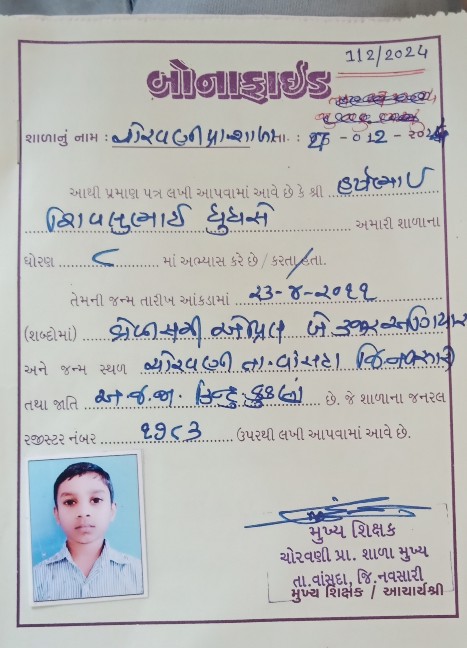 112/2024
બોનાફાઈડ
શાળાનું નામ : ચોરવણી પ્રા. શાળા તા. : - 012 -
આથી પ્રમાણ પત્ર લખી આપવામાં આવે છે કે શ્રી
શિવલુભાઈ અમારી શાળાના
ધોરણ ૮ માં અભ્યાસ કરે છે / કરતા હતા.
તેમની જન્મ તારીખ આંકડામાં ૨૩-૪-૨૦૧૧
(શબ્દોમાં) ત્રેવીસમી એપ્રિલ બે હજાર અગિયાર
અને જન્મ સ્થળ ચોરવણી તા. વાંસદા જિ. નવસારી
તથા જાતિ અ.જ.જા. હિન્દુ કુકણાં છે. જે શાળાના જનરલ
રજીસ્ટર નંબર ૧૭૮૩ ઉપરથી લખી આપવામાં આવે છે.
મુખ્ય શિક્ષક
ચોરવણી પ્રા. શાળા મુખ્ય
તા.વાંસદા, જિ.નવસારી
મુખ્ય શિક્ષક / આચાર્યશ્રી